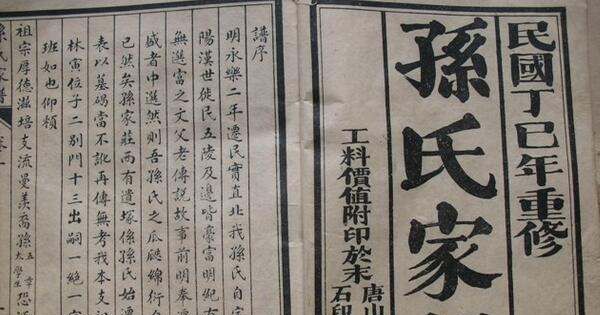 民國丁巳年重修
孫氏家
工料價值附印於末
唐山
石印
譜序
明永樂二年遷民實直北我孫氏自
陽漢世徙民五陵及邊皆豪富明紀
無選富之文父老傳說故事前明奉
者中選然則吾孫氏之瓜瓞綿衍
已然矣孫家莊而有遺塚係孫氏始遷
表以墓碣當不訛再傳無考我本支
林寅位子二別門十三出嗣一絕一
班如也仰賴
祖宗厚德滋培支流曼羨裔孫五章太學生恐
孫氏家譜 卷一